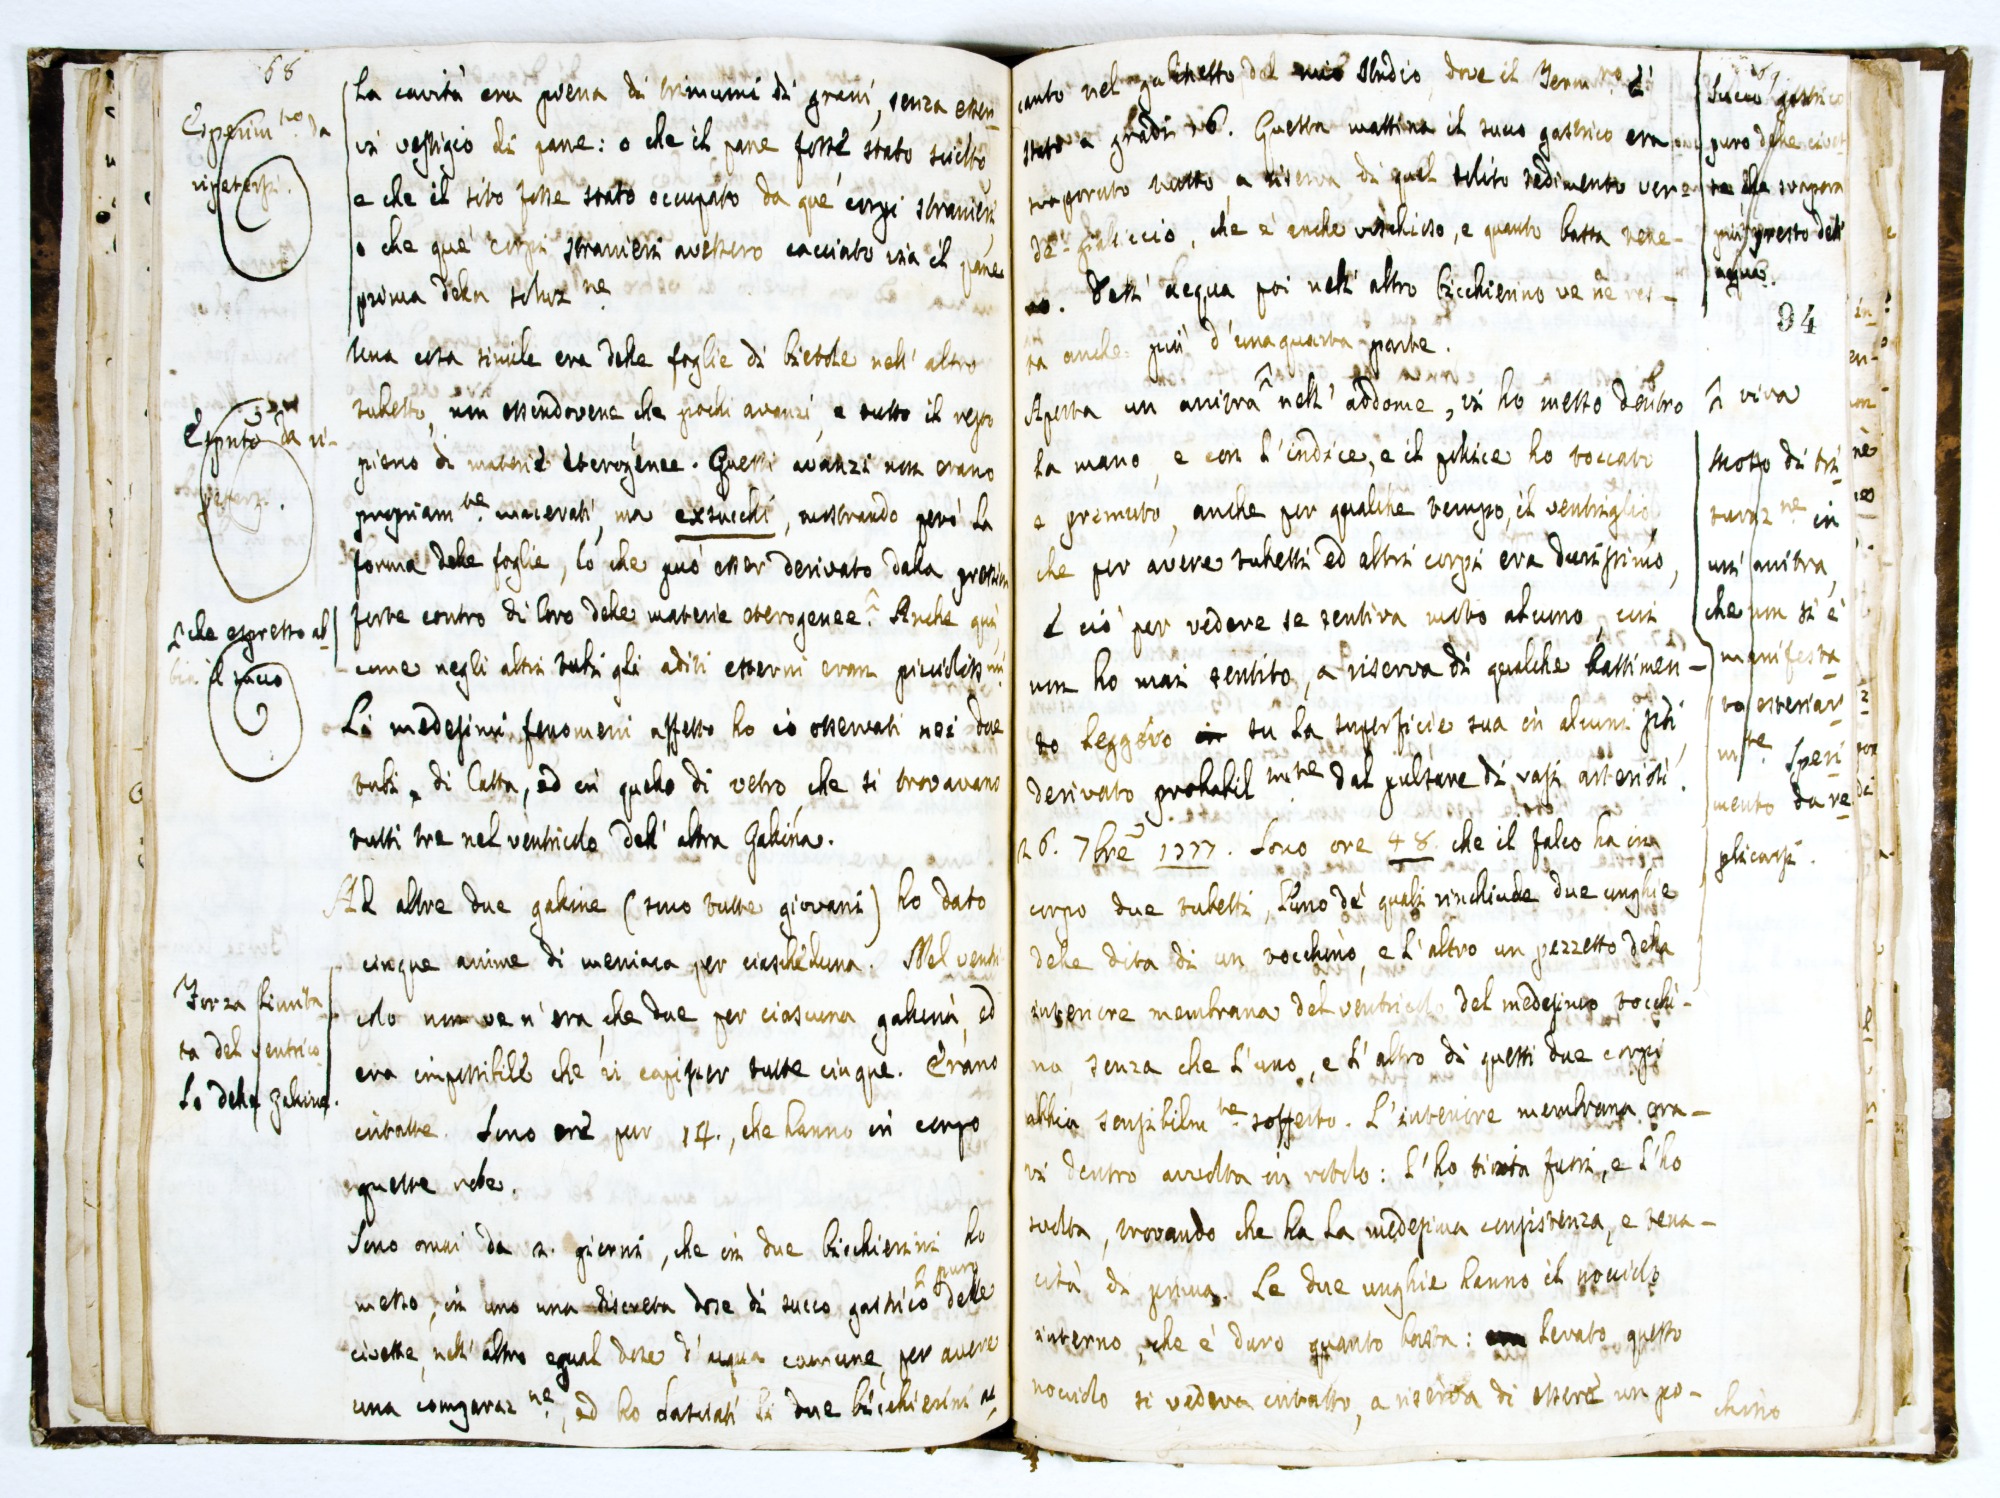 68
Esperim.to da
ripetersi.
la cavità era piena di trimumi di grani, senza esser-
vi vestigio di pane: o che il pane fosse stato sciolto
e che il sito fosse stato occupato da que' corpi stranieri,
o che que' corpi stranieri avessero cacciato via il pane
prima della soluz.ne
Una cosa simile era delle foglie di bietole nell' altro
tubetto, non essendovene che pochi avanzi, e tutto il resto
pieno di materie eterogenee. Questi avanzi non erano
propriam.te macerati, ma exsucchi, mostrando però la
forma delle foglie, lo che può esser derivato dalla pression
forte contro di loro delle materie eterogenee. Anche qui,
come negli altri tubi gli aditi esterni eran piccioliss.mi
Li medesimi fenomeni affatto ho io osservati nei due
tubi di latta, ed in quello di vetro che si trovavano
tutti tre nel ventricolo dell' altra gallina.
Esp.to da ri-
petersi.
che espresso ab-
bia il succo
Ad altre due galline (sono tutte giovani) ho dato
cinque anime di meniaca per ciascheduna. Nel ventri
colo non ve n'era, che due per ciascuna gallina, ed
era impossibile che vi capisser tutte cinque. Erano
intatte. Sono ore pur 14., che hanno in corpo
queste robe.
Forza limita-
ta del ventrico
lo delle galline.
Sono omai da 2. giorni, che in due bicchierini ho
messo, in uno una discreta dose di succo gastrico puro delle
civette, nell' altro egual dose d'acqua comune, per avere
una comparaz.ne, ed ho lasciati li due bicchierini ac
canto nel gabinetto del mio studio, dove il Term.ro è
stato a gradi 16. Questa mattina il succo gastrico era
svaporato tutto a riserva di quel solito sedimento ver-
de-gialiccio, che è anche vischioso, e quanto basta tene-
ro. Dell' acqua poi nell' altro bicchierino ve ne res-
ta anche più d'una quarta parte.
Succo gastrico
puro delle civet-
te, che svapora
più presto dell'
acqua.
94
Aperta un anitra nell' addome, vi ho messo dentro
la mano, e con l'indice, e il pollice ho toccato
e premuto, anche per qualche tempo, il ventriglio
che per avere tubetti ed altri corpi era durissimo,
e ciò per vedere se sentiva moto alcuno, cui
non ho mai sentito, a riserva di qualche battimen-
to leggero su la superficie sua in alcuni siti,
derivato probabil.mte dal pulsare di vasi arteriosi.
viva
Moto di tri-
turaz.ne in
un' anitra,
che non si è
manifesta
to esterior
m.te Speri-
mento da re-
plicarsi.
26. 7bre 1777. Sono ore 48. che il falco ha in
corpo due tubetti, l'uno de' quali rinchiude due unghie
delle dita di un tocchino, e l'altro un pezzetto della
interiore membrana del ventricolo del medesimo tocchi-
no, senza che l'uno, e l'altro di questi due corpi
abbia sensibilm.te sofferto. L'interiore membrana era-
vi dentro avvolta in rotolo: l'ho tirata fuori, e l'ho
svolta, trovando che ha la medesima consistenza, e tena-
cità di prima. Le due unghie hanno il nociolo
interno, che è duro quanto basta: levato questo
nociolo si vedeva intatto, a riserva di essere un po-
chino